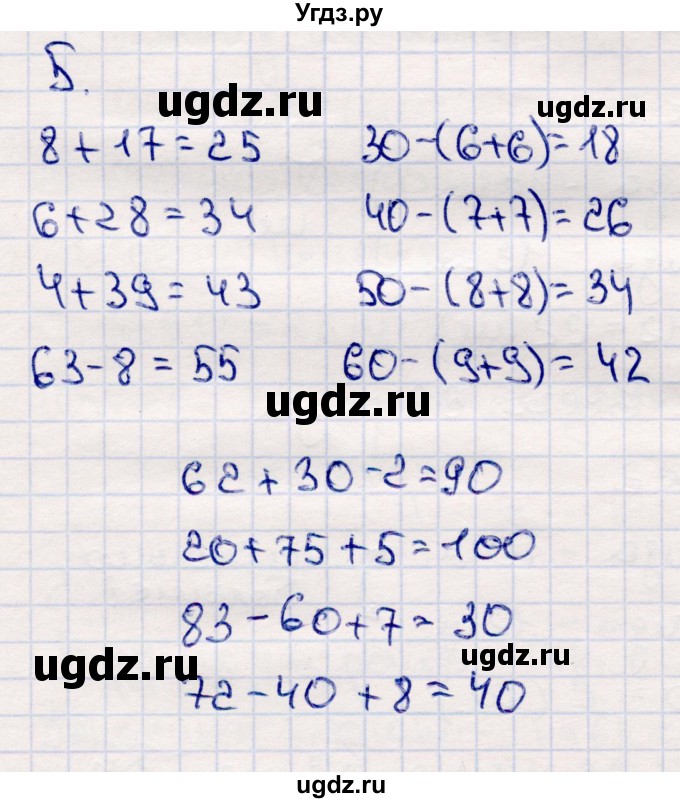 Угдз.ру
5.
ugdz.ru
ugdz.ru
8+17=25 30-(6+6)=18
6+28=34 40-(7+7)=26
4+39=43 50-(8+8)=34
63-8=55 60-(9+9)=42
ugdz.ru
62+30-2=90
20+75+5=100
83-60+7=30
ugdz.ru
ugdz.ru
72-40+8=40
ugdz.ru